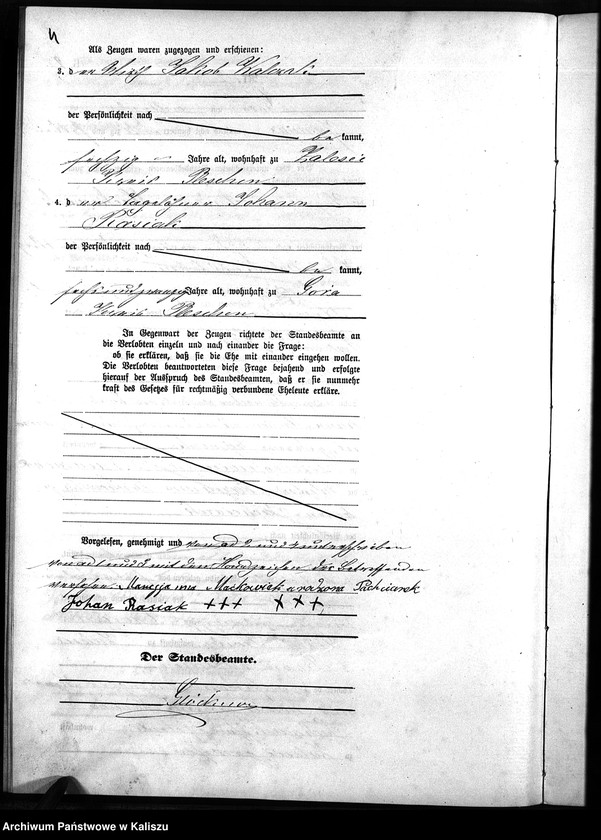 Als Zeugen waren zugezogen und erschienen:
3. der Wirth Jakob
der Persönlichkeit nach
be kannt,
sechzig Jahre alt, wohnhaft zu Zalesie
Kreis Pleschen
4. der Tagelöhner Johann
Rasiak
der Persönlichkeit nach
be kannt,
sechsundzwanzig Jahre alt, wohnhaft zu Gora
Kreis Pleschen
In Gegenwart der Zeugen richtete der Standesbeamte an
die Verlobten einzeln und nach einander die Frage:
ob sie erklären, daß sie die Ehe mit einander eingehen wollen.
Die Verlobten beantworteten diese Frage bejahend und erfolgte
hierauf der Ausspruch des Standesbeamten, daß er sie nunmehr
kraft des Gesetzes für rechtmäßig verbundene Eheleute erkläre.
Vorgelesen, genehmigt und von ad 2 und 4 unterschrieben
von ad 1 und 3 mit den Handzeichen der Betreffenden
versehen. Maćkowiak urodzona
Johan Rasiak +++ +++
Der Standesbeamte.
Glöckner
Archiwum Państwowe w Kaliszu